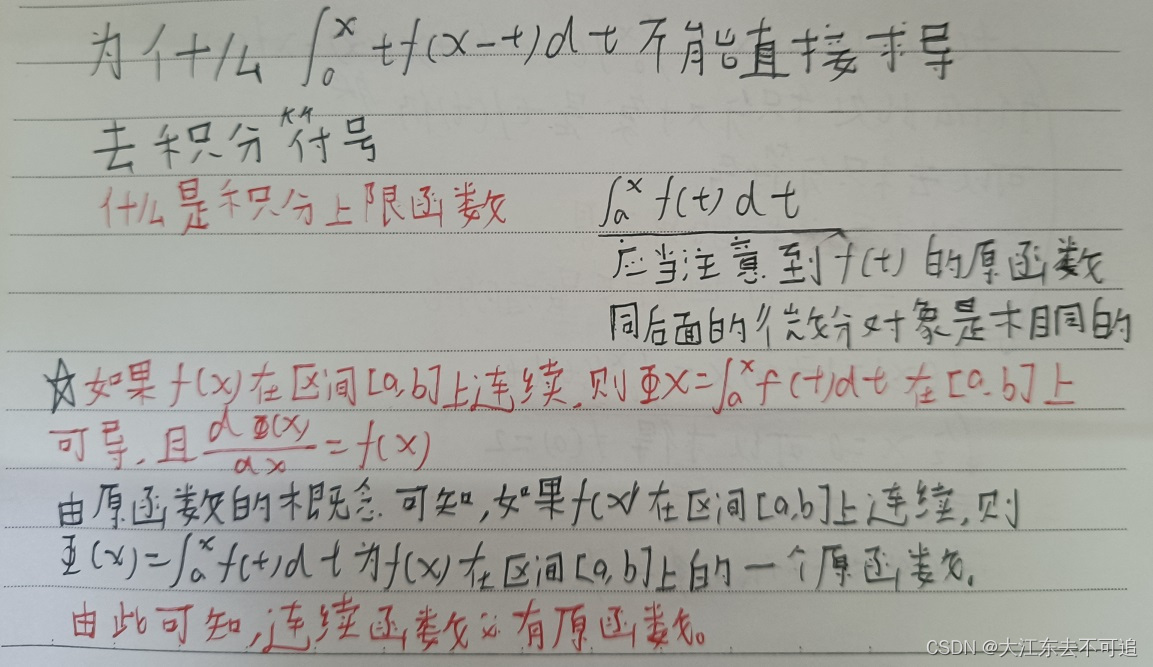 为什么 ∫₀ˣ tf(x-t)dt 不能直接求导
去积分符号
什么是积分上限函数 ∫ₐˣ f(t)dt
应当注意到 f(t) 的原函数
同后面的微分对象是相同的
☆如果f(x)在区间[a,b]上连续,则ΦX=∫ₐˣf(t)dt 在[a,b]上
可导,且 dΦ(x)/dx = f(x)
由原函数的概念可知,如果f(x)在区间[a,b]上连续,则
Φ(x)=∫ₐˣf(t)dt为f(x)在区间[a,b]上的一个原函数.
由此可知,连续函数必有原函数。
CSDN @大江东去不可追